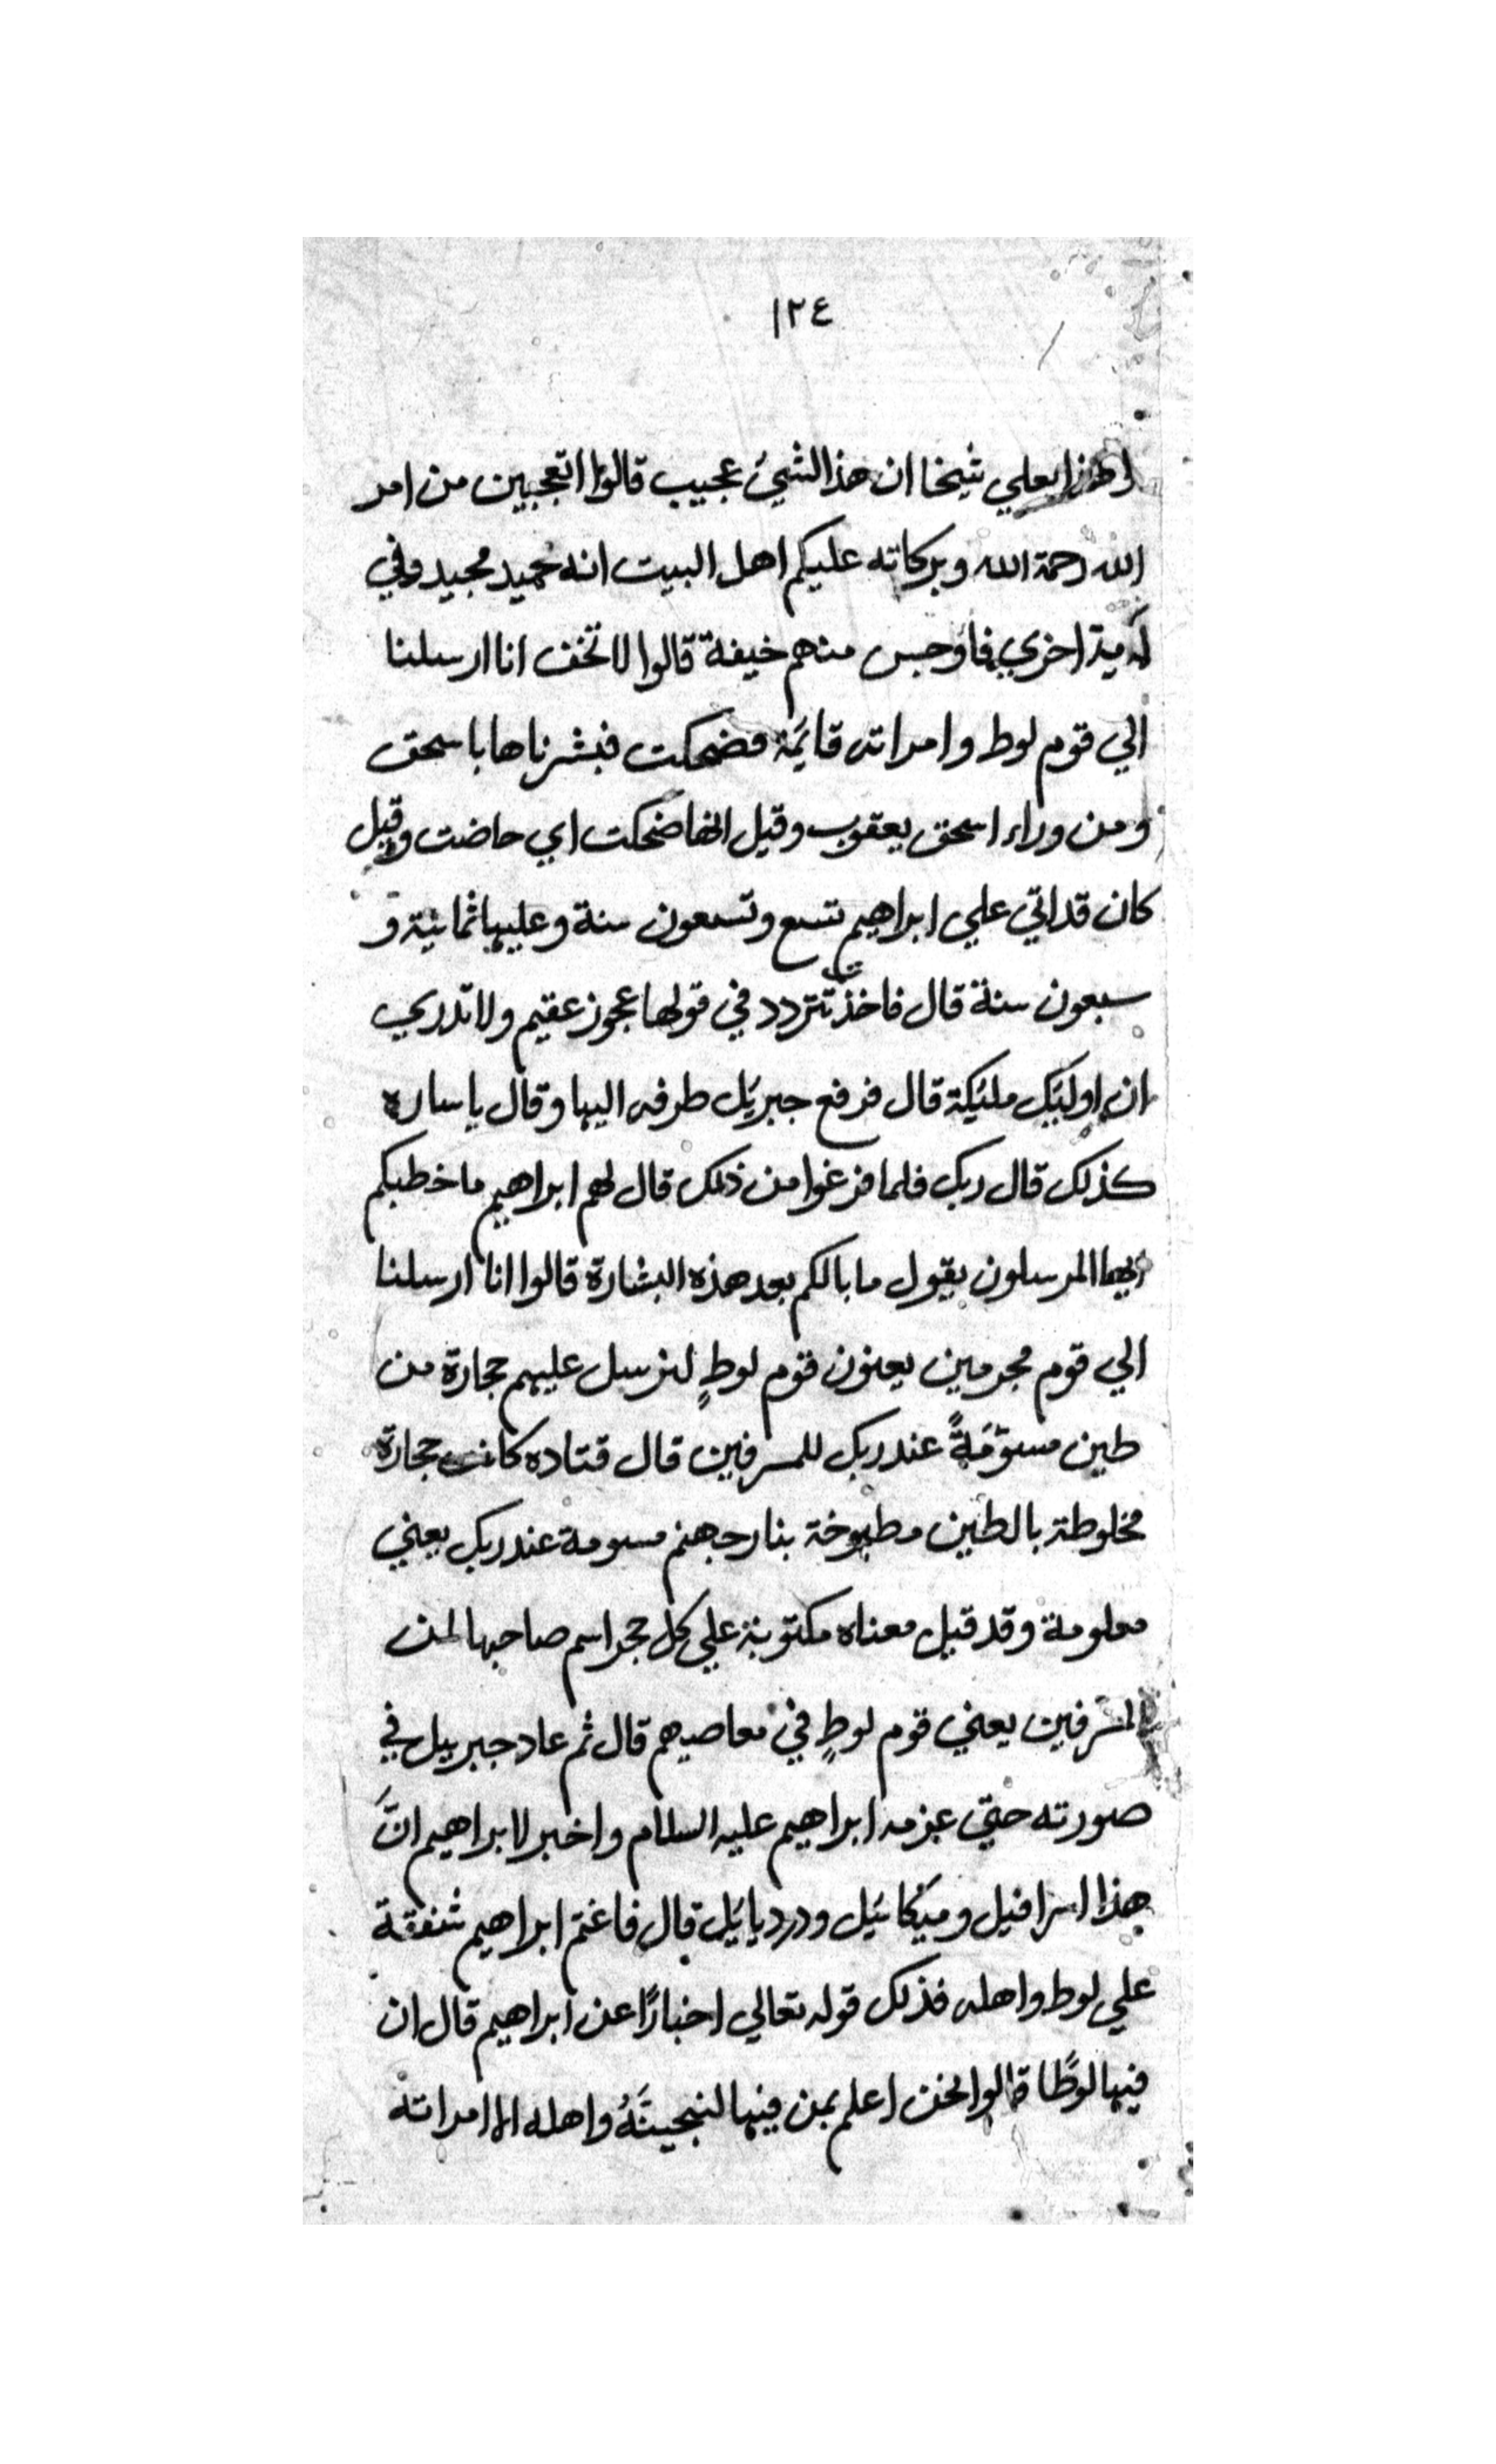 ١٢٤
وهذا بعلي شيخا ان هذا لشيئ عجيب قالوا اتعجبين من امر
الله رحمة الله وبركاته عليكم اهل البيت انه حميد مجيد وفي
اية اخري فاوجس منهم خيفة قالوا لا تخف انا ارسلنا
الي قوم لوط وامراته قايمة فضحكت فبشرناها باسحق
ومن وراء اسحق يعقوب وقيل انها ضحكت اي حاضت وقيل
كان قد اتي علي ابراهيم تسع وتسعون سنة وعليها ثمانية و
سبعون سنة قال فاخذت تتردد في قولها عجوز عقيم ولا تدري
ان اوليك مليكة قال فرفع جبريل طرفه اليها وقال يا ساره
كذلك قال ربك فلما فرغوا من ذلك قال لهم ابراهيم ما خطبكم
ايها المرسلون يقول ما بالكم بعد هذه البشارة قالوا انا ارسلنا
الي قوم مجرمين يعنون قوم لوطٍ لنرسل عليهم حجارة من
طين مسوّمَةً عند ربك للمسرفين قال قتاده كانت حجارة
مخلوطة بالطين مطبوخة بنار جهنم مسومة عند ربك يعني
معلومة وقد قيل معناه مكتوبة علي كل حجر اسم صاحبها لمن
المسرفين يعني قوم لوطٍ في معاصيهم قال ثم عاد جبرييل في
صورته حتي عرفه ابراهيم عليه السلام واخبر لابراهيم انَّ
هذا اسرافيل وميكائيل ودرديايل قال فاغتم ابراهيم شفقة
علي لوط واهله فذلك قوله تعالي اخبارًا عن ابراهيم قال ان
فيها لوطًا قالوا نحن اعلم بمن فيها لننجينَّهُ واهله الا امراته